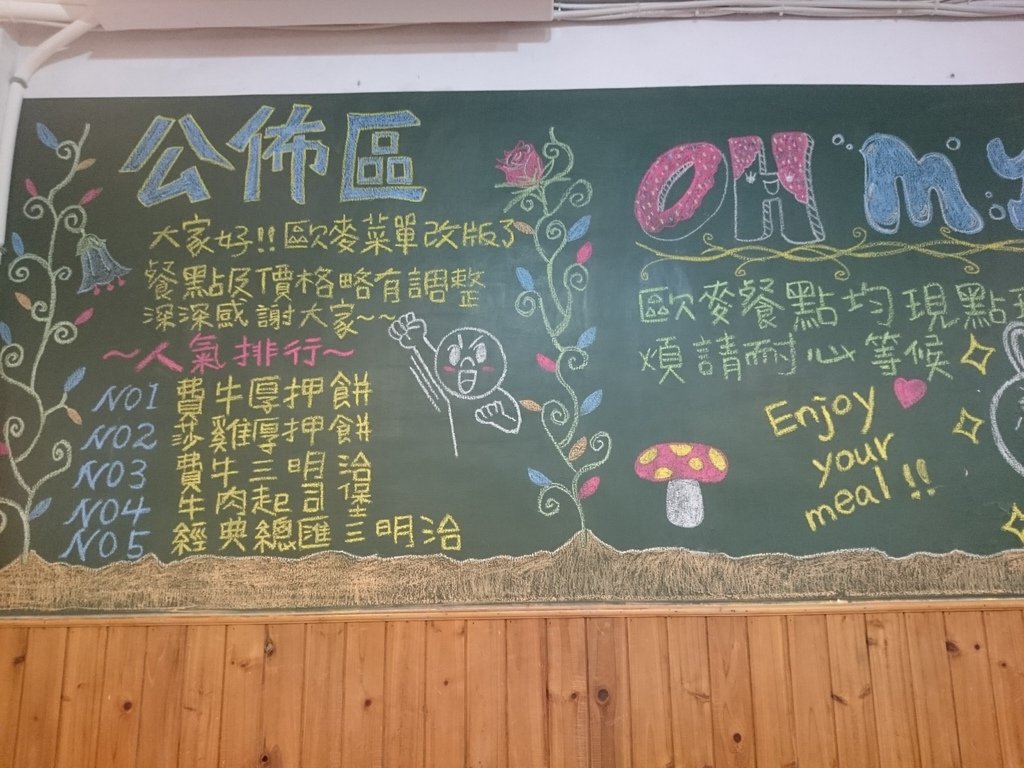 公佈區
大家好!! 歐麥菜單改版了
餐點及價格略有調整
深深感謝大家~~
~人氣排行~
NO1 費牛厚押餅
NO2 莎雞厚押餅
NO3 費牛三明治
NO4 牛肉起司堡
NO5 經典總匯三明治
OH M
歐麥餐點均現點
煩請耐心等候
Enjoy
your
meal!!